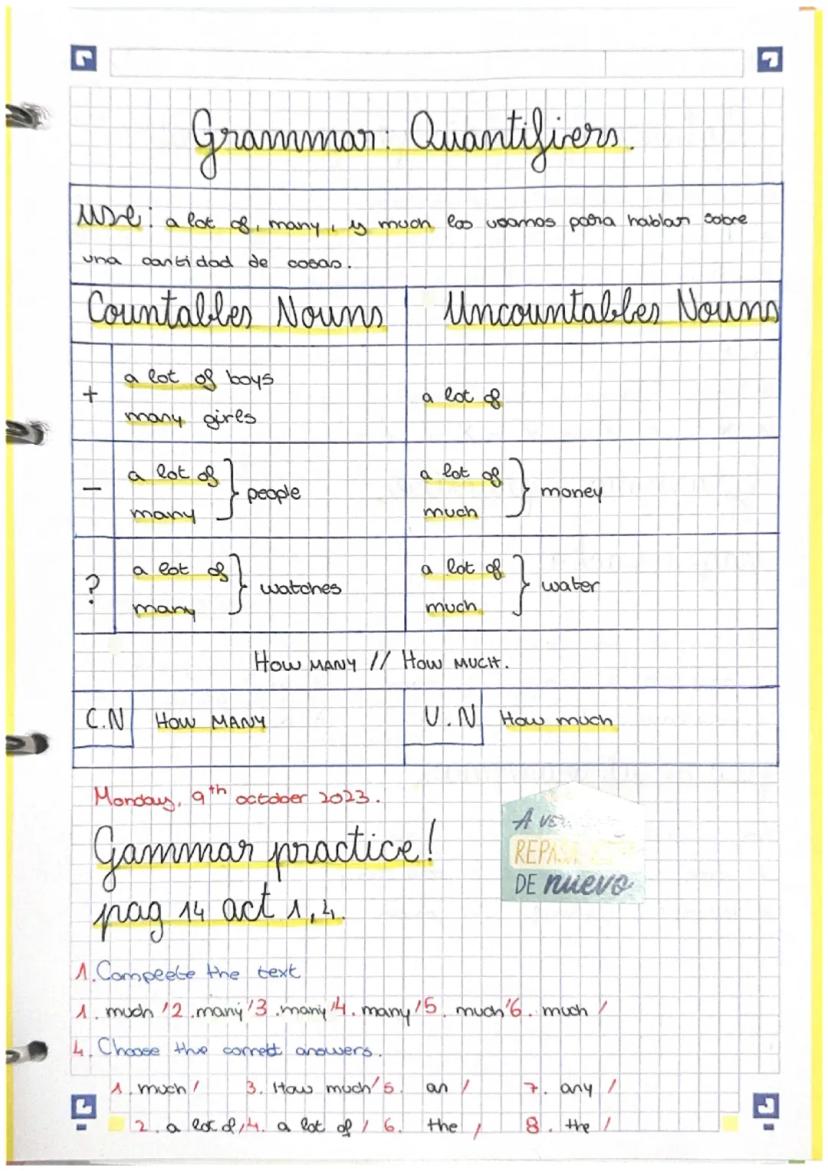 Grammar: Quantifiers.
USE: a lot of, many, y much los usamos para hablar sobre
una cantidad de cosas.
Countables Nouns
Uncountables Nouns
+
a lot of boys
many girls
a lot of
-
a lot of
many
} people
a lot of
much
} money
?
a lot of
many
} watches
a lot of
much
} water
HOW MANY // HOW MUCH.
C.N HOW MANY
U.N How much
Monday, 9th october 2023.
Gammar practice!
pag 14 act 1,4.
A
REPASA
DE nuevo
1. Compeete the text
1. much / 2. many / 3. many / 4. many / 5. much / 6. much /
4. Choose the correct answers.
1. much / 3. How much / 5. an / 7. any /
2. a lot of / 4. a lot of / 6. the / 8. the /